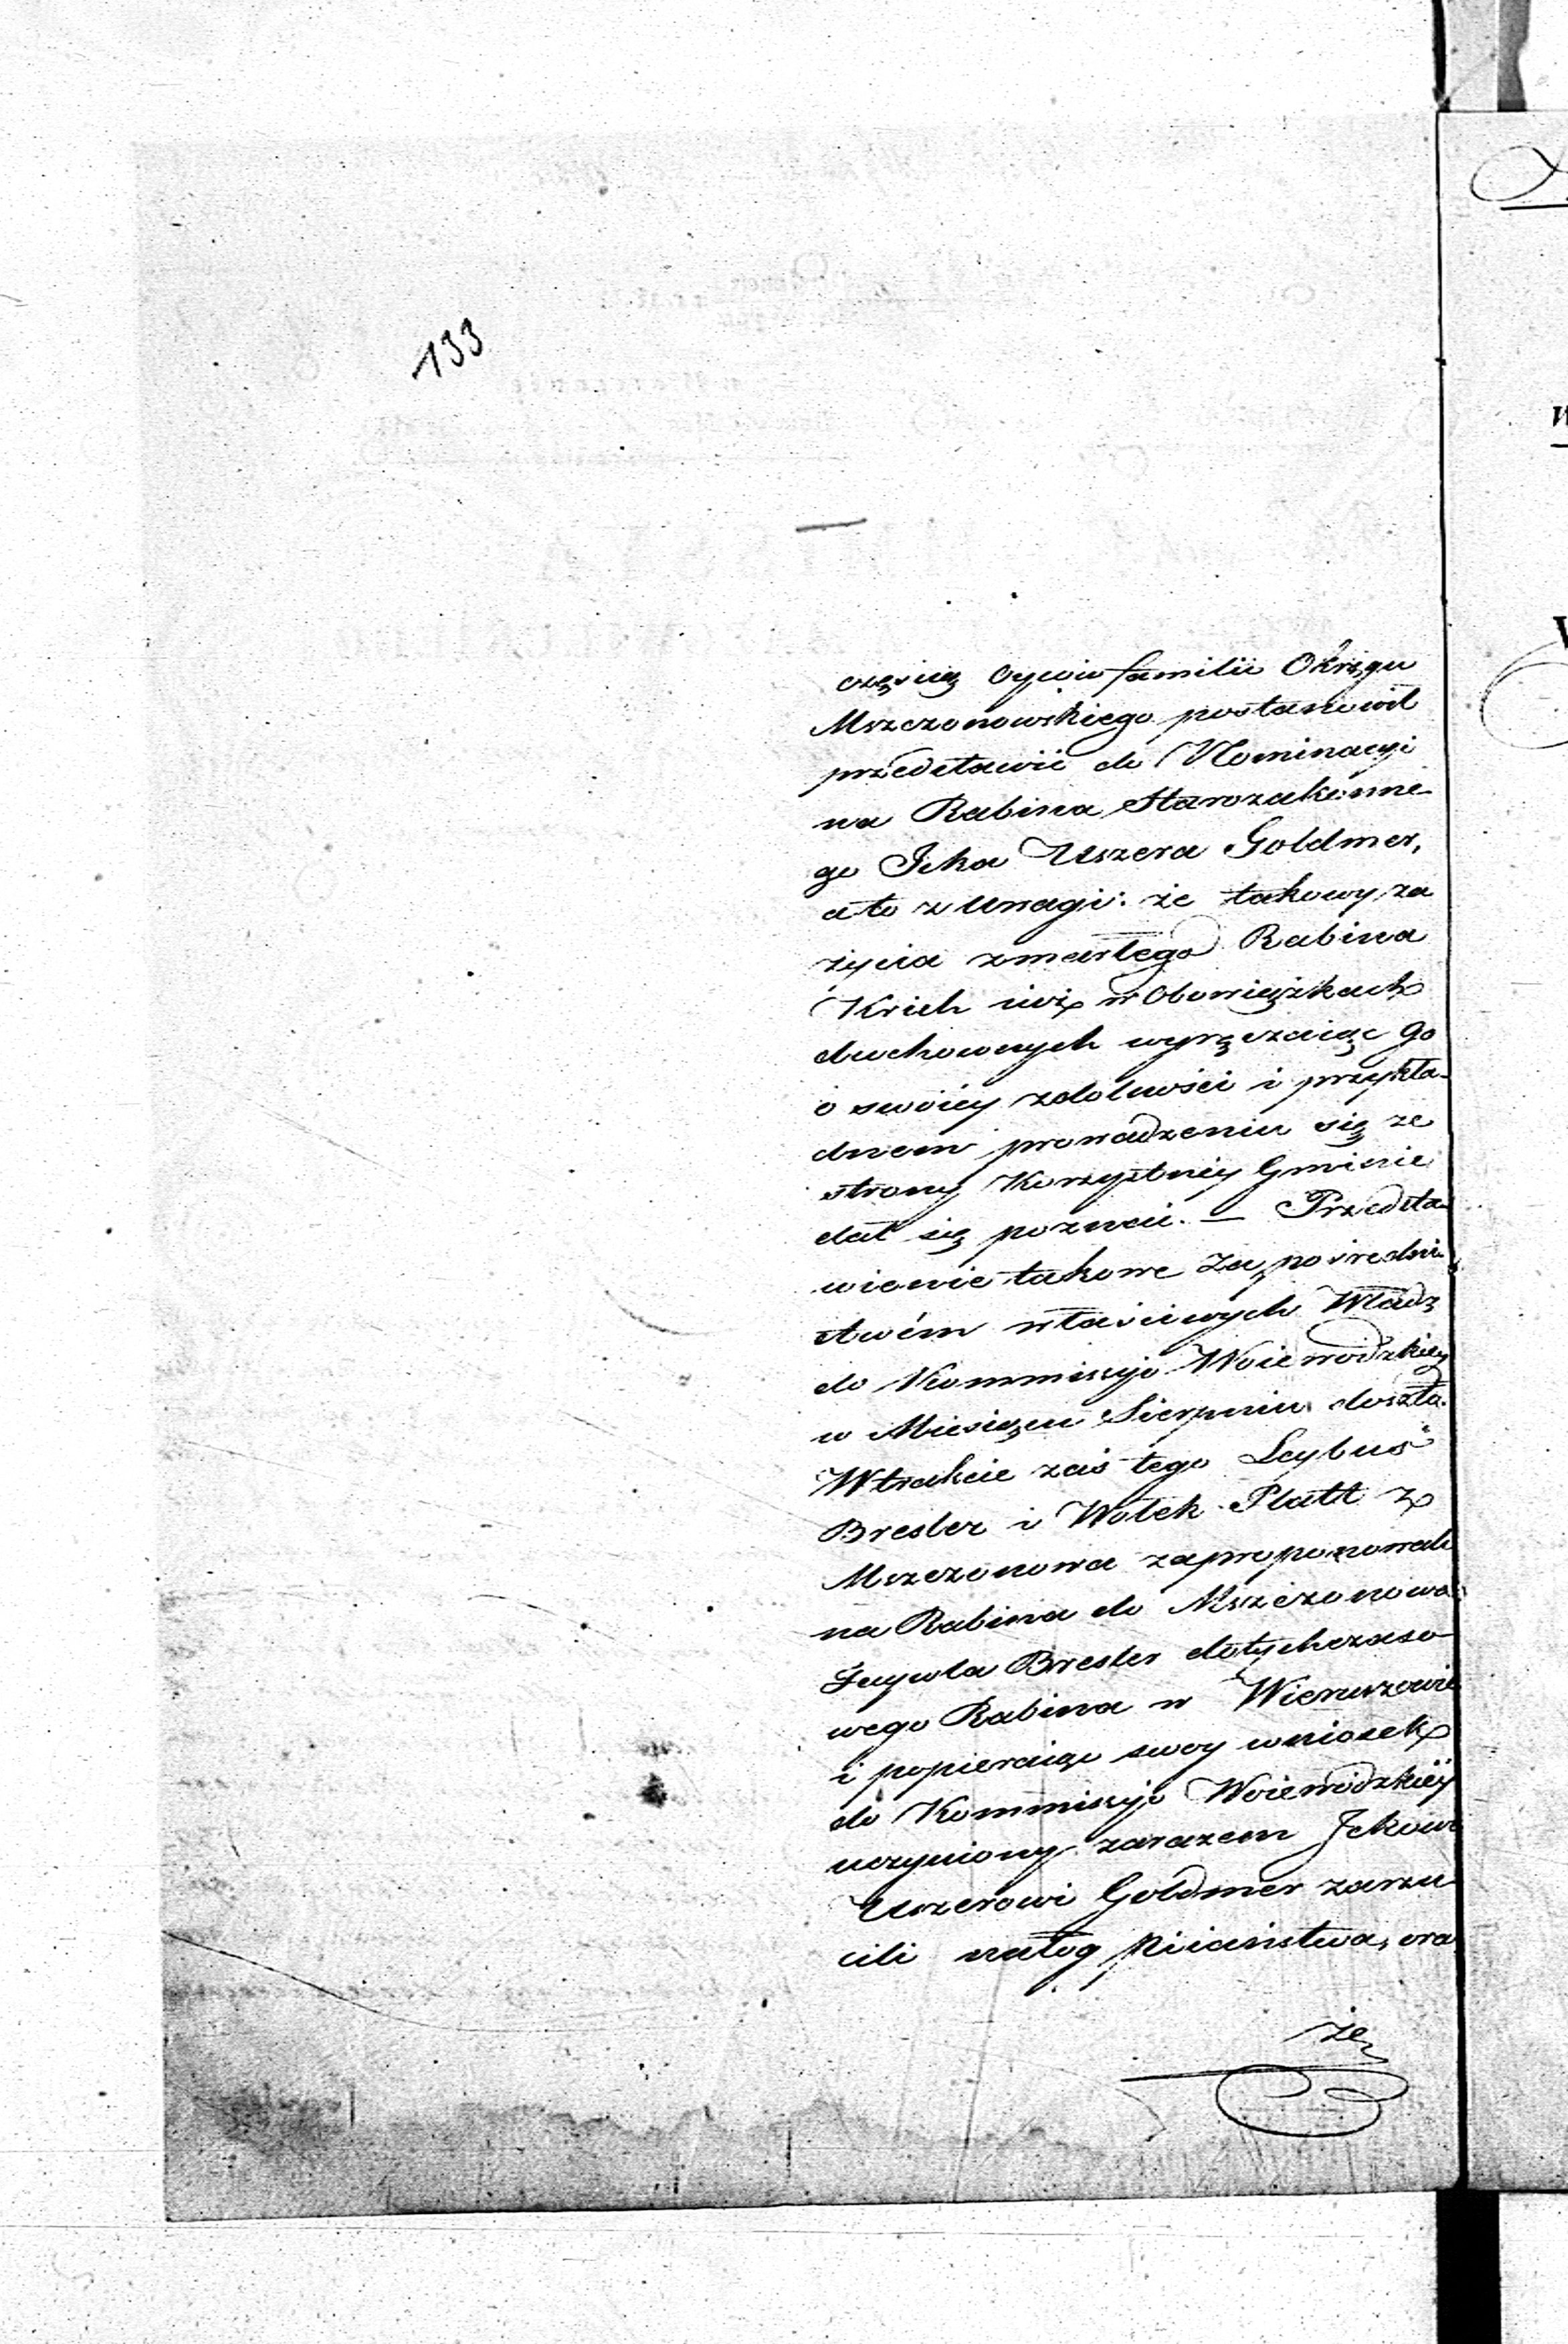 133
częścią Oyców familii Okręgu
Mszczonowskiego postanowił
przedstawić do Nominacyi
na Rabina Starozakonne
go Icka Uszera Goldmer,
a to z uwagi: że takowy za
życia zmarłego Rabina
Krich iuż w Obowiązkach
duchownych wyręczaiąc go
o swoiey zdolności i przykła-
dnem prowadzeniu się ze
strony Korzystney Gminie
dał się poznać. — Przedsta-
wienie takowe za pośredni-
ctwém właściwych Władz
do Kommissyi Woiewodzkiey
w Miesiącu Sierpniu doszło.
W trakcie zaś tego Leybuś
Bresler i Wolek Platt z
Mszczonowa zaproponowali
na Rabina do Mszczonowa
Bresler dotychczaso-
wego Rabina w Wieruszowie
i popieraiąc swoy wniosek
do Kommissyi Woiewodzkiéy
uczyniony zarazem Ickowi
Uszerowi Goldmer zarzu
cili nałog piiaństwa, ora
że